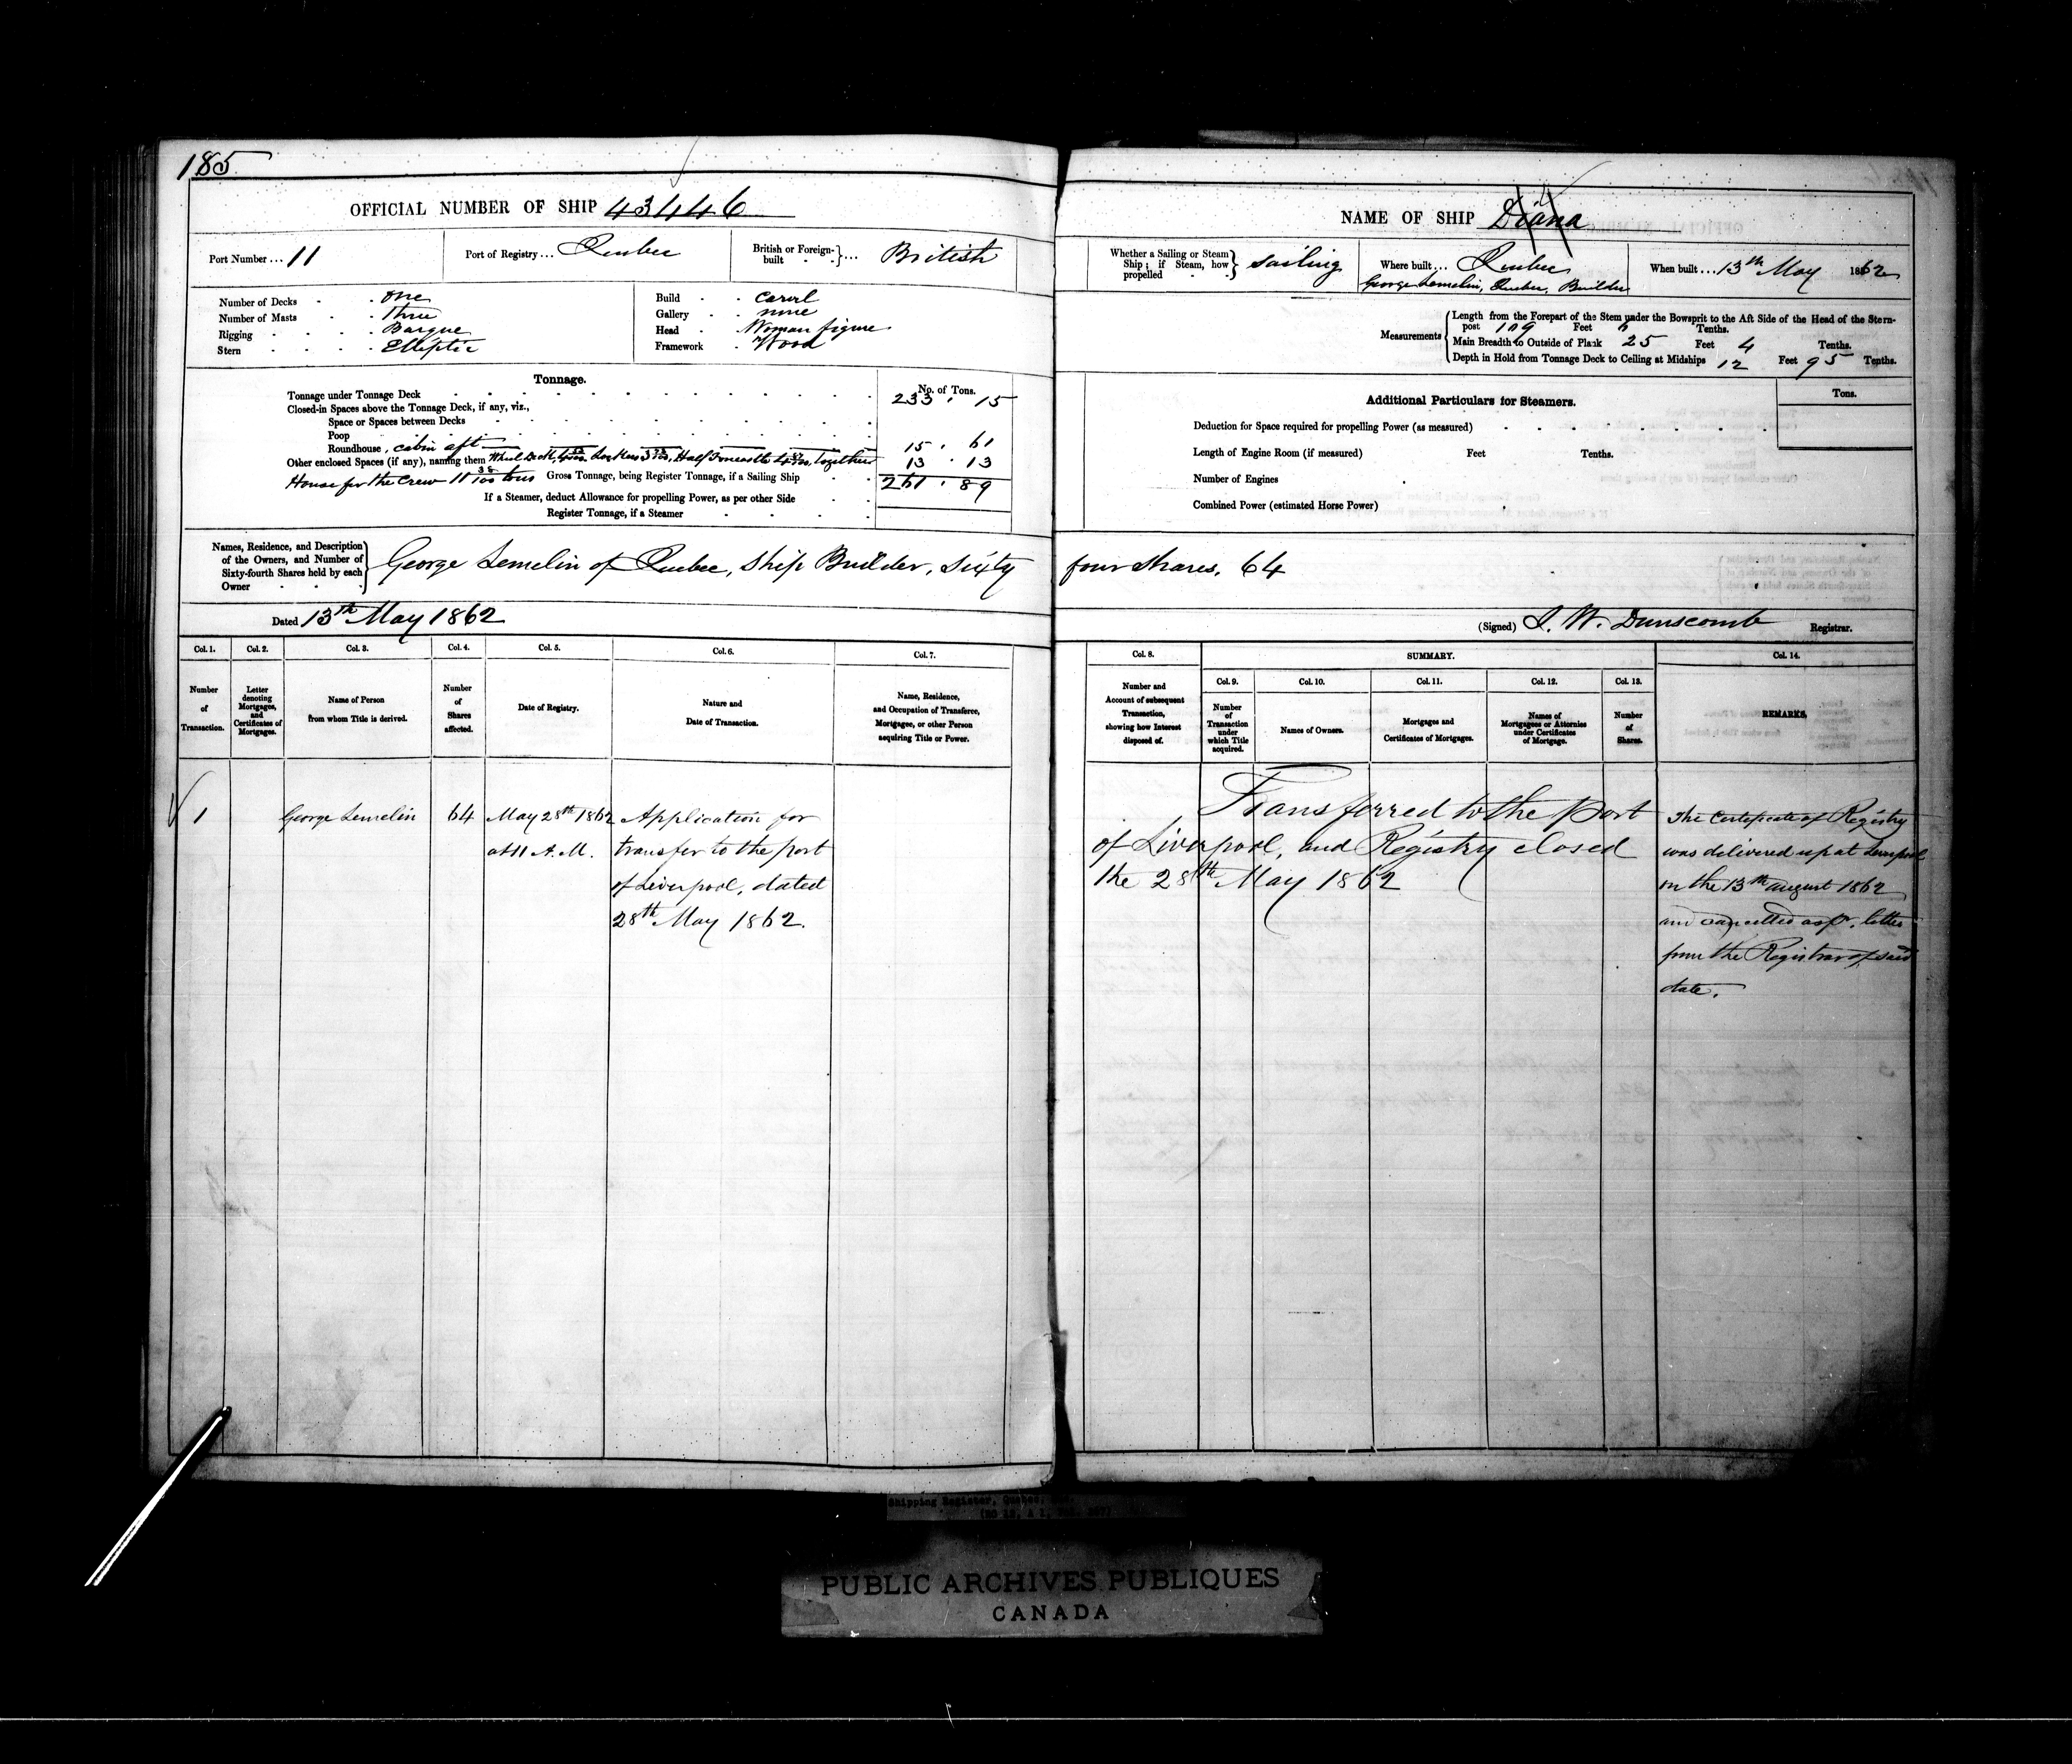 185
OFFICIAL NUMBER OF SHIP 43446
Port Number ... 11
Port of Registry ... Quebec
British or Foreign-built ... British
Number of Decks . . one
Number of Masts . . three
Rigging . . . . Barque
Stern . . . . Elliptic
Build . . carvl
Gallery . . none
Head . . Woman figure
Framework . Wood
Tonnage.
No. of Tons.
Tonnage under Tonnage Deck 233 . 15
Closed-in Spaces above the Tonnage Deck, if any, viz.,
Space or Spaces between Decks
Poop
Roundhouse, cabin aft 15 . 61
Other enclosed Spaces (if any), naming them Half Forecastle together 13 . 13
House for the Crew 11 38/100 tons Gross Tonnage, being Register Tonnage, if a Sailing Ship 261 . 89
If a Steamer, deduct Allowance for propelling Power, as per other Side
Register Tonnage, if a Steamer
Names, Residence, and Description of the Owners, and Number of Sixty-fourth Shares held by each Owner
George Lemelin of Quebec, Ship Builder, Sixty
Dated 13th May 1862
Col. 1. Col. 2. Col. 3. Col. 4. Col. 5. Col. 6. Col. 7.
Number of Transaction.
Letter denoting Mortgages, and Certificates of Mortgages.
Name of Person from whom Title is derived.
Number of Shares affected.
Date of Registry.
Nature and Date of Transaction.
Name, Residence, and Occupation of Transferee, Mortgagee, or other Person acquiring Title or Power.
1
George Lemelin
64
May 28th 1862
at 11 A.M.
Application for
transfer to the port
of Liverpool, dated
28th May 1862.
NAME OF SHIP Diana
Whether a Sailing or Steam Ship; if Steam, how propelled sailing
Where built ... Quebec
George Lemelin, Quebec, Builder
When built ... 13th May 1862
Measurements
Length from the Forepart of the Stem under the Bowsprit to the Aft Side of the Head of the Stern-
post 109 Feet 6 Tenths.
Main Breadth to Outside of Plank 25 Feet 4 Tenths.
Depth in Hold from Tonnage Deck to Ceiling at Midships 12 Feet 95 Tenths.
Additional Particulars for Steamers.
Tons.
Deduction for Space required for propelling Power (as measured)
Length of Engine Room (if measured) Feet Tenths.
Number of Engines
Combined Power (estimated Horse Power)
four shares. 64
(Signed) J. W. Dunscomb Registrar.
Col. 8.
SUMMARY.
Col. 14.
Col. 9. Col. 10. Col. 11. Col. 12. Col. 13.
Number and Account of subsequent Transaction, showing how Interest disposed of.
Number of Transaction under which Title acquired.
Names of Owners.
Mortgages and Certificates of Mortgages.
Names of Mortgagees or Attornies under Certificates of Mortgage.
Number of Shares.
REMARKS.
Transferred to the Port
of Liverpool, and Registry closed
the 28th May 1862
The Certificate of Registry
was delivered up at Liverpool
on the 13th august 1862
and cancelled as pr. letter
from the Registrar of said
date.
Shipping Register, Quebec,
PUBLIC ARCHIVES PUBLIQUES
CANADA